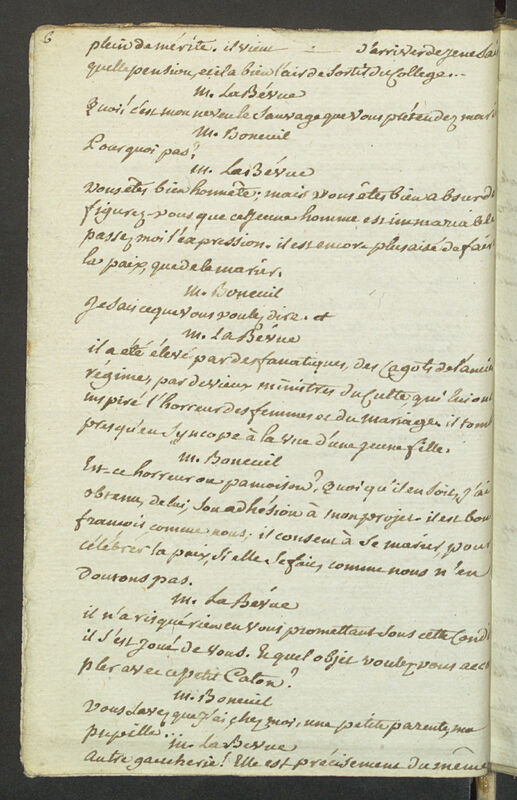 6
plein de mérite. il vient d'arriver de je ne sai
quelle pension, et il a bien l'air de sortir du College...
M. La Bévue
Quoi! c'est mon neveu le Sauvage que vous prétendez mari
M. Boneuil
Pourquoi pas?
M. La Bévue
vous êtes bien honnête; mais vous êtes bien absurde
figurez-vous que ce jeune homme est immariable
passez moi l'expression. il est encore plus aisé de fair
la paix, que de le marier.
M. Boneuil
Je sais ce que vous voulez dire. et
M. La Bévue
il a été élevé par des fanatiques, des Cagots de l'ancien
régime, par de vieux ministres du Culte qui lui ont
inspiré l'horreur des femmes et du mariage. il tom
presqu'en Syncope à la vue d'une jeune fille.
M. Boneuil
Est-ce horreur ou pamoison? Quoi qu'il en soit, j'ai
obtenu de lui, son adhésion à mon projet. il est bon
françois comme nous; il consent à se marier, pour
célébrer la paix, Si elle se fait, comme nous n'en
doutons pas.
M. La Bévue
il n'a risqué rien en vous promettant sous cette Condi
il s'est joué de vous. Et quel objet voulez vous acco
pler avec ce petit Caton?
M. Boneuil
vous savez que j'ai chez moi, une petite parente, ma
pupille...
M. La Bévue
autre gaucherie! Elle est précisement du même